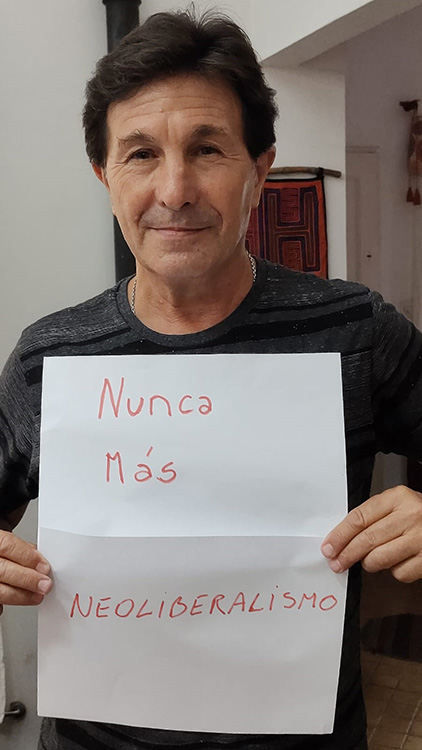 Nunca
Más
NEOLIBERALISMO